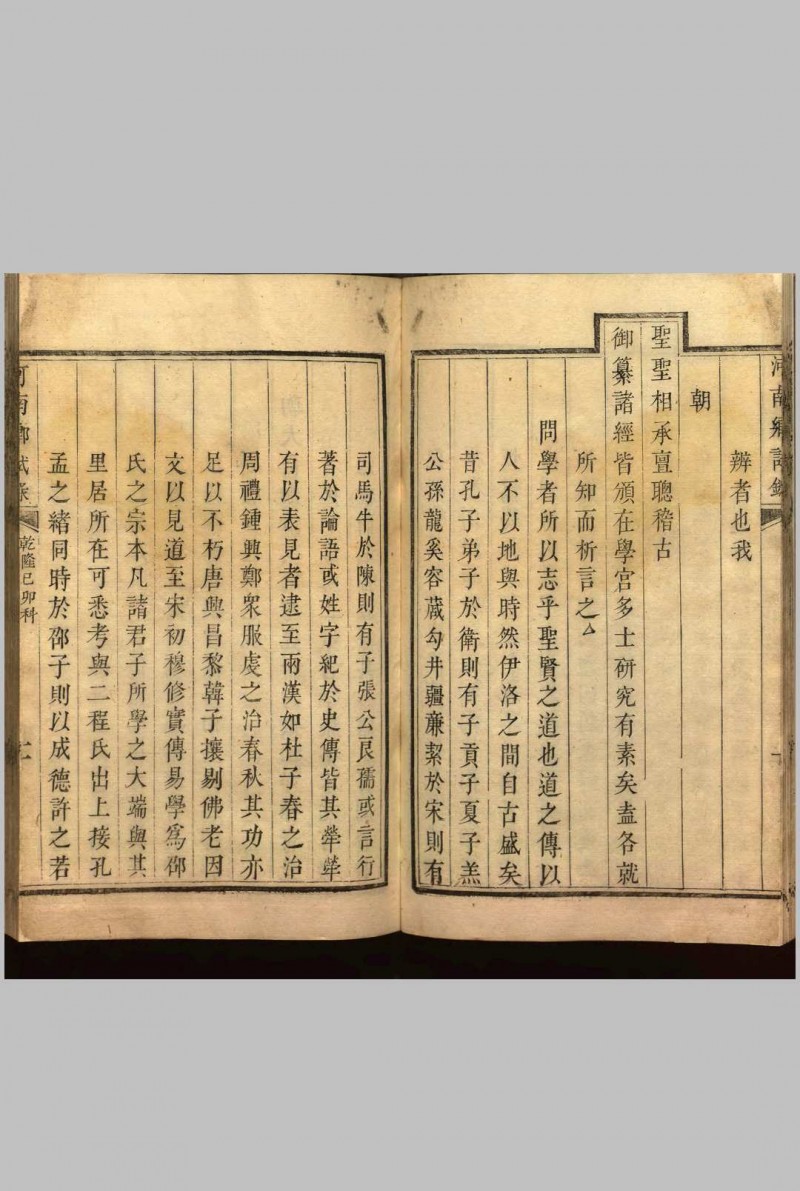 河南鄉試錄
一
辨者也我
朝
聖聖相承亶聰稽古
御纂諸經皆頒在學宮多士研究有素矣盍各就
所知而析言之
問學者所以志乎聖賢之道也道之傳以
人不以地與時然伊洛之間自古盛矣
昔孔子弟子於衛則有子貢子夏子羔
公孫龍奚容蒧勾井疆亷絜於宋則有
司馬牛於陳則有子張公良孺或言行
著於論語或姓字紀於史傳皆其犖犖
有以表見者逮至兩漢如杜子春之治
周禮鍾興鄭衆服虔之治春秋其功亦
足以不朽唐興昌黎韓子攘剔佛老因
文以見道至宋初穆修實傳易學爲邵
氏之宗本凡諸君子所學之大端與其
里居所在可悉考與二程氏出上接孔
孟之緒同時於邵子則以成德許之若
河南鄉試錄
乾隆己卯科
二